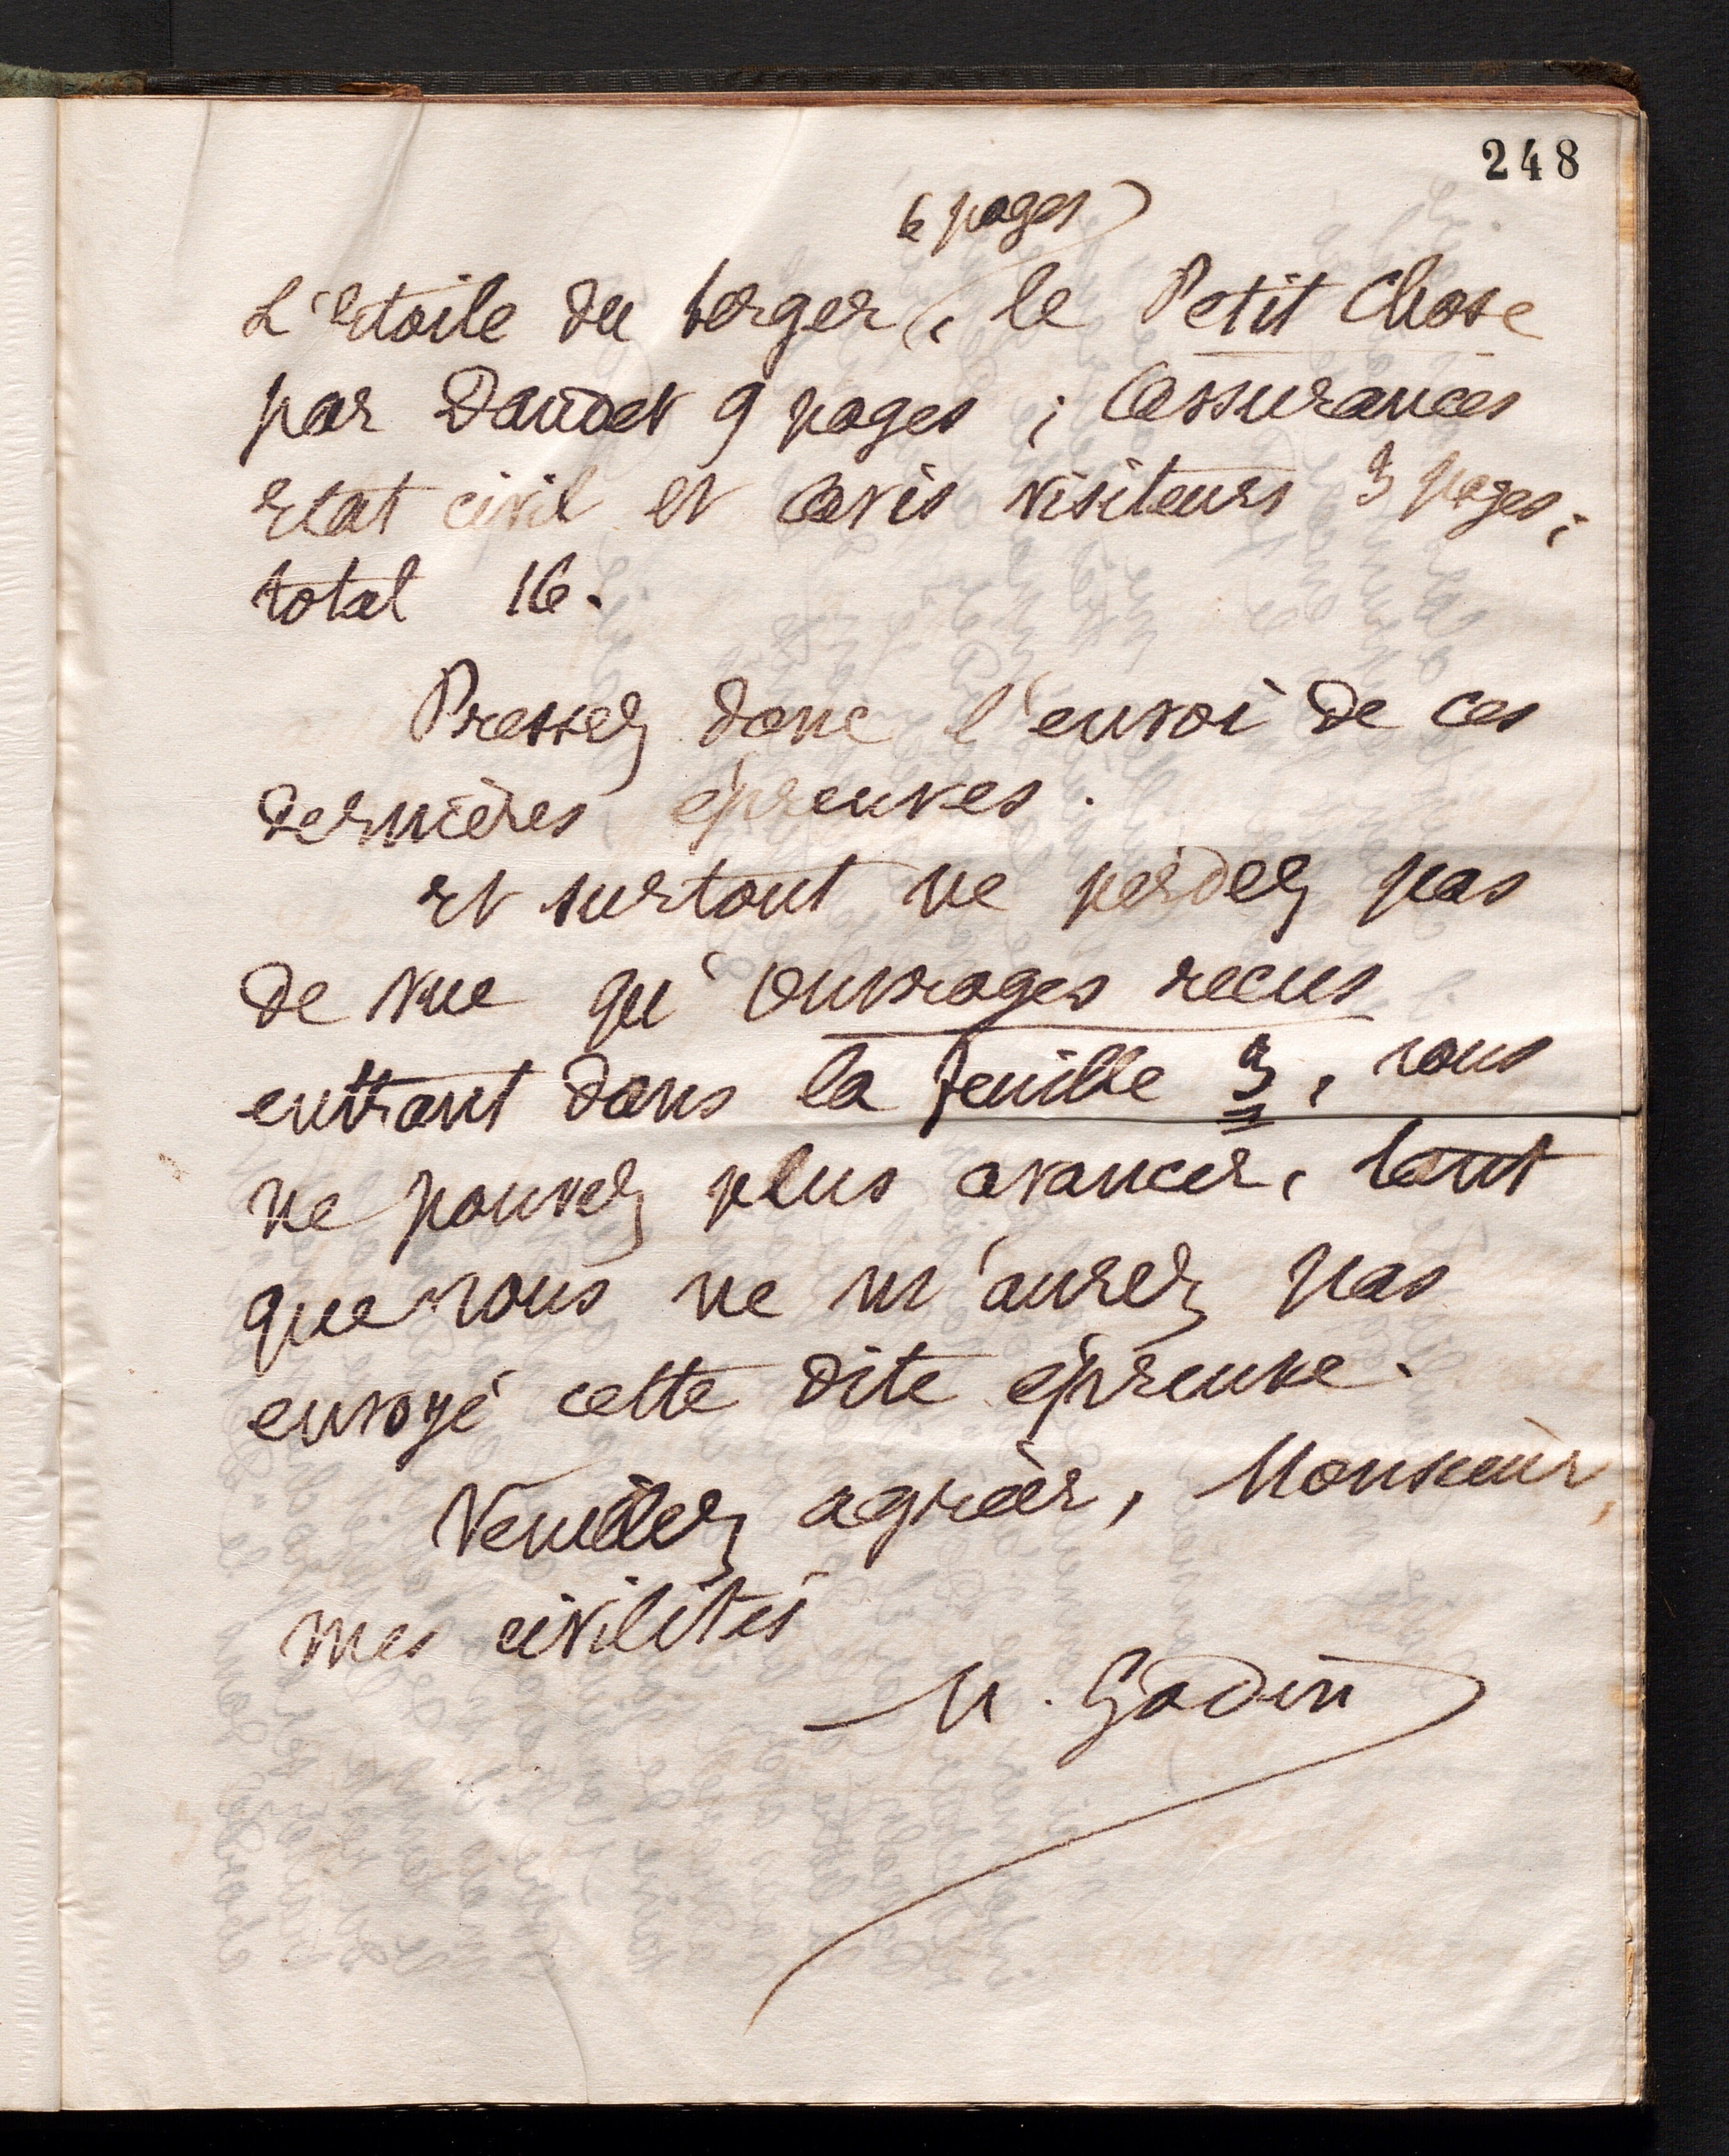 248
6 pages)
L'Etoile du berger (, le Petit Chose
par Daudet 9 pages ; Assurances
Etat civil et Avis visiteurs 3 pages ;
total 16.
Pressez donc l'envoi de ces
dernières épreuves.
Et surtout ne perdez pas
de vue qu'Ouvrages recus
entrant dans la feuille 3, vous
ne pouvez plus avancer, tant
que vous ne m'aurez pas
envoyé cette dite épreuve.
Veuillez agréer, Monsieur,
mes civilités
M. Godin